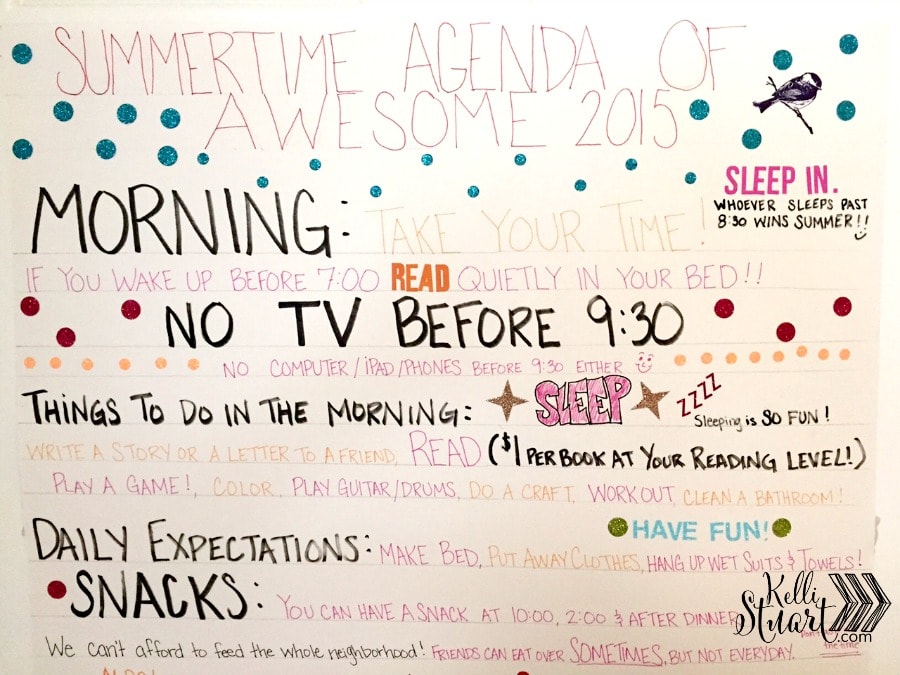 SUMMERTIME AGENDA OF
AWESOME 2015
SLEEP IN.
WHOEVER SLEEPS PAST
8:30 WINS SUMMER!!
MORNING: TAKE YOUR TIME!
IF YOU WAKE UP BEFORE 7:00 READ QUIETLY IN YOUR BED!!
NO TV BEFORE 9:30
NO COMPUTER/IPAD/PHONES BEFORE 9:30 EITHER
THINGS TO DO IN THE MORNING: SLEEP ZZZZ
Sleeping is SO FUN!
WRITE A STORY OR A LETTER TO A FRIEND, READ ($1 PER BOOK AT YOUR READING LEVEL!)
PLAY A GAME!, COLOR, PLAY GUITAR/DRUMS, DO A CRAFT, WORK OUT, CLEAN A BATHROOM!
HAVE FUN!
DAILY EXPECTATIONS: MAKE BED, PUT AWAY CLOTHES, HANG UP WET SUITS & TOWELS!
SNACKS: YOU CAN HAVE A SNACK AT 10:00, 2:00 & AFTER DINNER
Kelli
Stuart
.com
We can't afford to feed the whole neighborhood! FRIENDS CAN EAT OVER SOMETIMES, BUT NOT EVERYDAY.